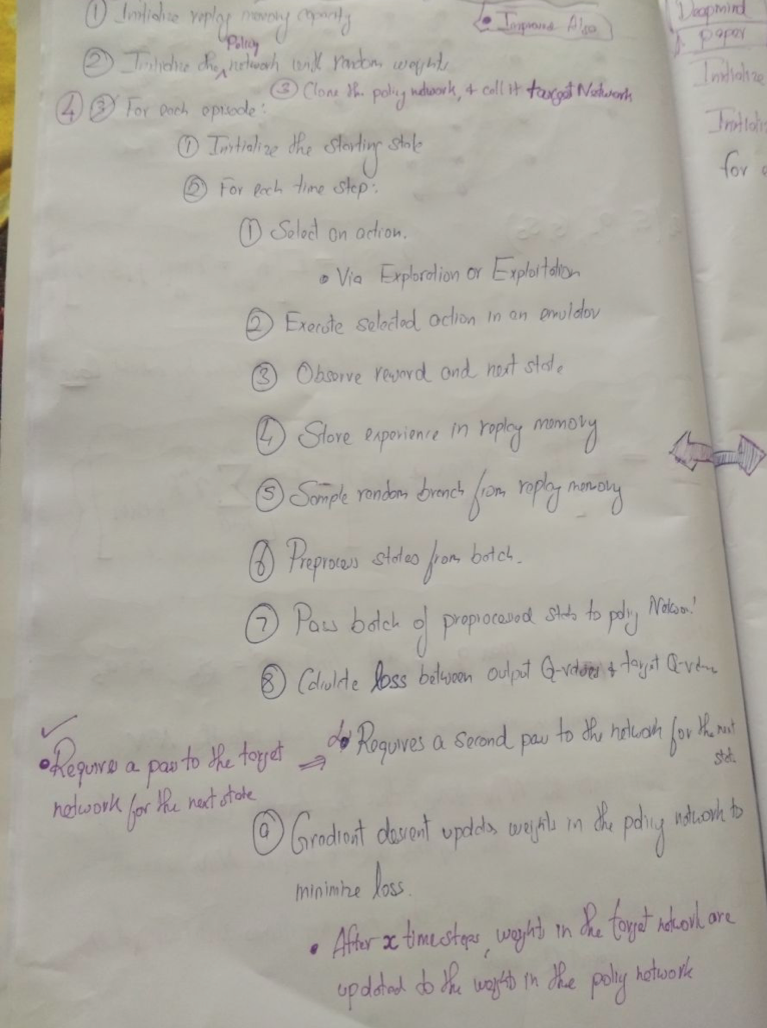 ① Initialize replay memory capacity
• Improved Algo
Deepmind
paper
② Initialize the Policy network with random weights
③ Clone the policy network, & call it target Network
Initialize
④ ③ For each episode:
① Initialize the starting state
for
② For each time step:
① Select an action.
• Via Exploration or Exploitation
② Execute selected action in an emulator
③ Observe reward and next state
④ Store experience in replay memory
⑤ Sample random branch from replay memory
⑥ Preprocess states from batch.
⑦ Pass batch of preprocessed states to policy Network
⑧ Calculate loss between output Q-values & target Q-value
• Requires a pass to the target ⇒ Requires a second pass to the network for the next
network for the next state
state
⑨ Gradient descent updates weights in the policy network to
minimize loss.
• After x timesteps, weights in the target network are
updated to the weights in the policy network